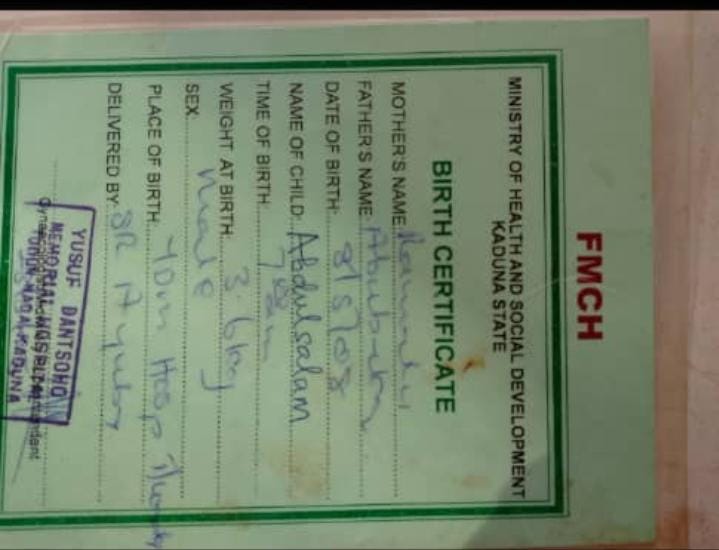 FMCH
MINISTRY OF HEALTH AND SOCIAL DEVELOPMENT
KADUNA STATE
BIRTH CERTIFICATE
MOTHER'S NAME
FATHER'S NAME Abubakar
DATE OF BIRTH:
NAME OF CHILD: Abdulsalam
TIME OF BIRTH: 7:00am
WEIGHT AT BIRTH: 3.6kg
SEX male
PLACE OF BIRTH: YDM Hosp
DELIVERED BY: SR
YUSUF DANTSOHO
MEMORIAL HOSPITAL
TUDUN WADA KADUNA